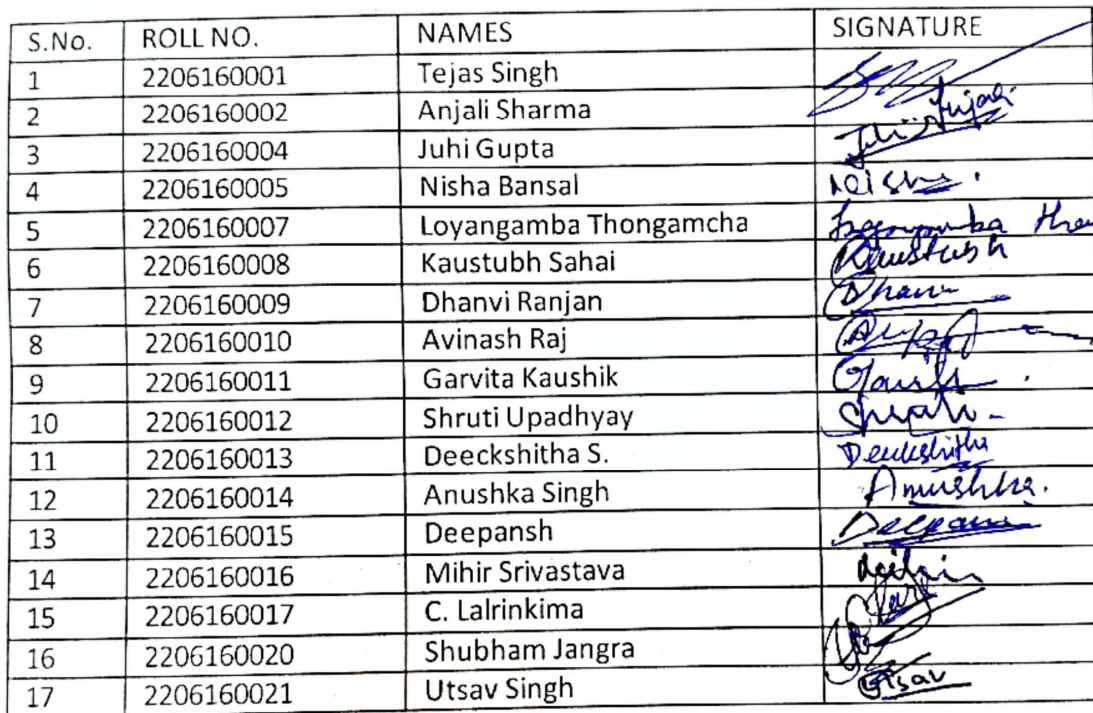 S.No. ROLL NO. NAMES SIGNATURE
1 2206160001 Tejas Singh
2 2206160002 Anjali Sharma Anjali
3 2206160004 Juhi Gupta Juhi
4 2206160005 Nisha Bansal Nisha
5 2206160007 Loyangamba Thongamcha
6 2206160008 Kaustubh Sahai Kaustubh
7 2206160009 Dhanvi Ranjan
8 2206160010 Avinash Raj
9 2206160011 Garvita Kaushik
10 2206160012 Shruti Upadhyay
11 2206160013 Deeckshitha S. Deeckshitha
12 2206160014 Anushka Singh Anushka.
13 2206160015 Deepansh
14 2206160016 Mihir Srivastava
15 2206160017 C. Lalrinkima
16 2206160020 Shubham Jangra
17 2206160021 Utsav Singh Utsav